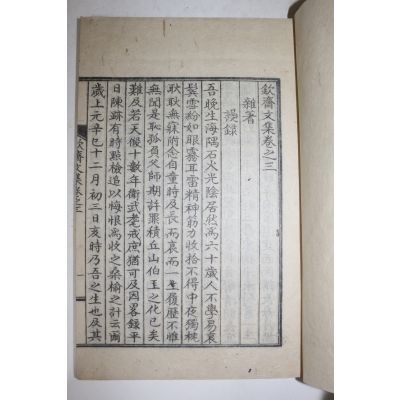 欽齋文集卷之三
雜著
誤錄
吾晚生海隅石火光陰居然爲六十歲人不學易衰
鬢雪紛如眼霧耳雷精神筋力收拾不得中夜獨枕
耿耿無寐附念自童時及長而衰而一生履歷不惟
無聞是恥孤負父師期許罪積丘山伯玉之化已矣
難及若天假十數年衛武耄戒庶猶可及因畧錄平
日陳跡有時點檢追以悔恨爲收之桑榆之計云爾
歲上元辛巳十二月初三日亥時乃吾之生也及其
欽齋文集卷之三
一